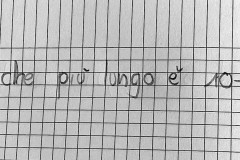 che più lungo è 10-